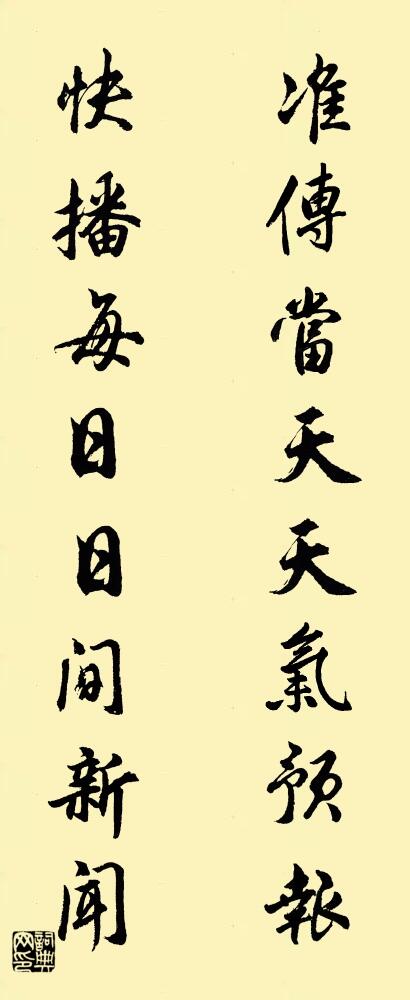 准傳當天天氣預報
快播每日日间新闻
詞典網印